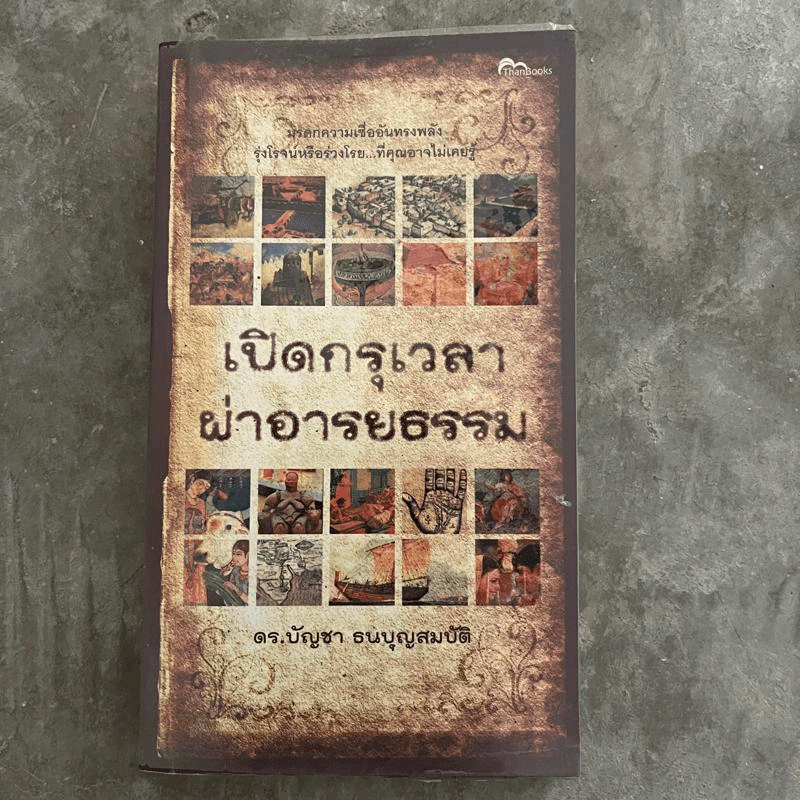 ThanBooks
มรดกความเชื่ออันทรงพลัง
รุ่งโรจน์หรือร่วงโรย...ที่คุณอาจไม่เคยรู้
เปิดกรุเวลา
ผ่าอารยธรรม
ดร.บัญชา ธนบุญสมบัติ